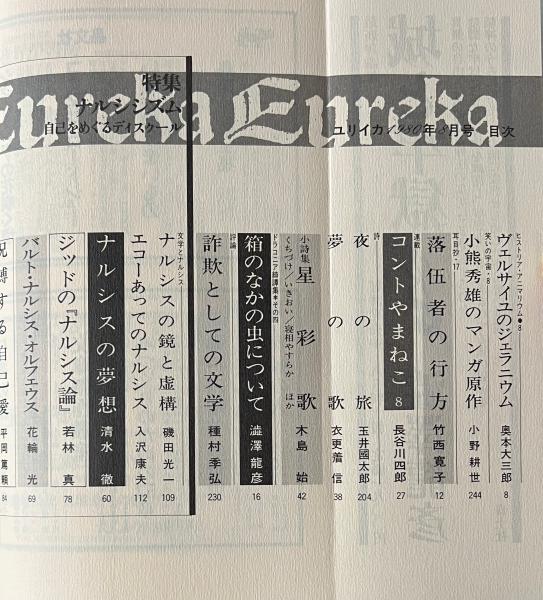 Eureka Eureka
ユリイカ 1980年8月号 目次
特集
ナルシシズム
自己をめぐるディスクール
ヒストリア・アニマリウム●8
ヴェルサイユのジェラニウム 奥本大三郎 8
笑いの宇宙・8
小熊秀雄のマンガ原作 小野耕世 244
耳目抄・17
落伍者の行方 竹西寛子 12
連載
コントやまねこ 8 長谷川四郎 27
詩
夜の旅 玉井國太郎 204
夢の歌 衣更着信 38
小詩集
星彩歌 木島始 42
くちづけ/いきおい/寝相やすらか ほか
ドラコニア綺譚集●その四
箱のなかの虫について 澁澤龍彦 16
評論
詐欺としての文学 種村季弘 230
文学とナルシス
ナルシスの鏡と虚構 磯田光一 109
エコーあってのナルシス 入沢康夫 112
ナルシスの夢想 清水徹 60
ジッドの『ナルシス論』 若林真 78
バルト・ナルシス・オルフェウス 花輪光 69
呪縛する自己愛 平岡篤頼 84